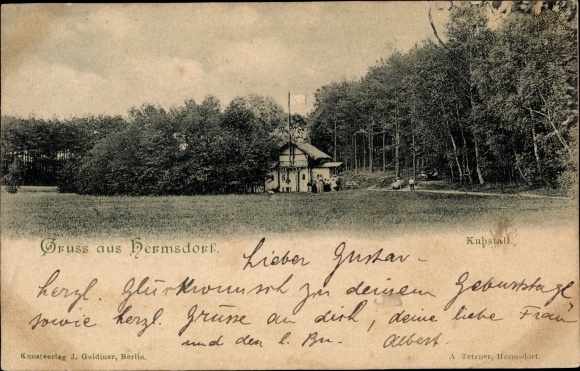 Gruss aus Hermsdorf.
Kuhstall.
Lieber Gustav -
herzl. Glückwunsch zu deinem Geburtstage
sowie herzl. Grüsse an dich, deine liebe Frau
und den l. Bu. Albert.
Kunstverlag J. Goldiner, Berlin.
A. Tetzner, Hermsdorf.